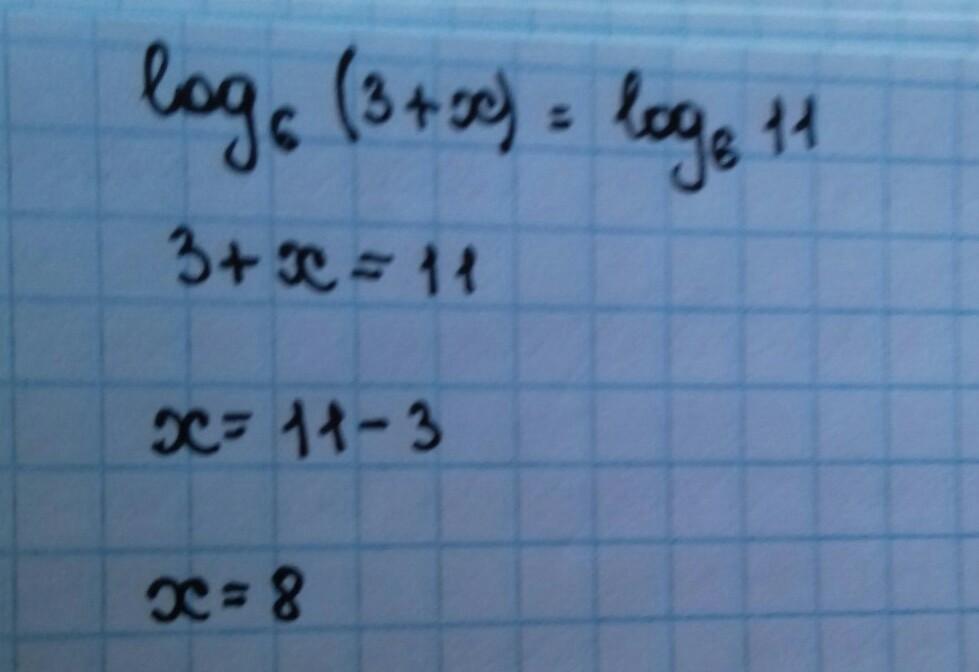 log₆ (3+x) = log₆ 11
3+x=11
x=11-3
x=8